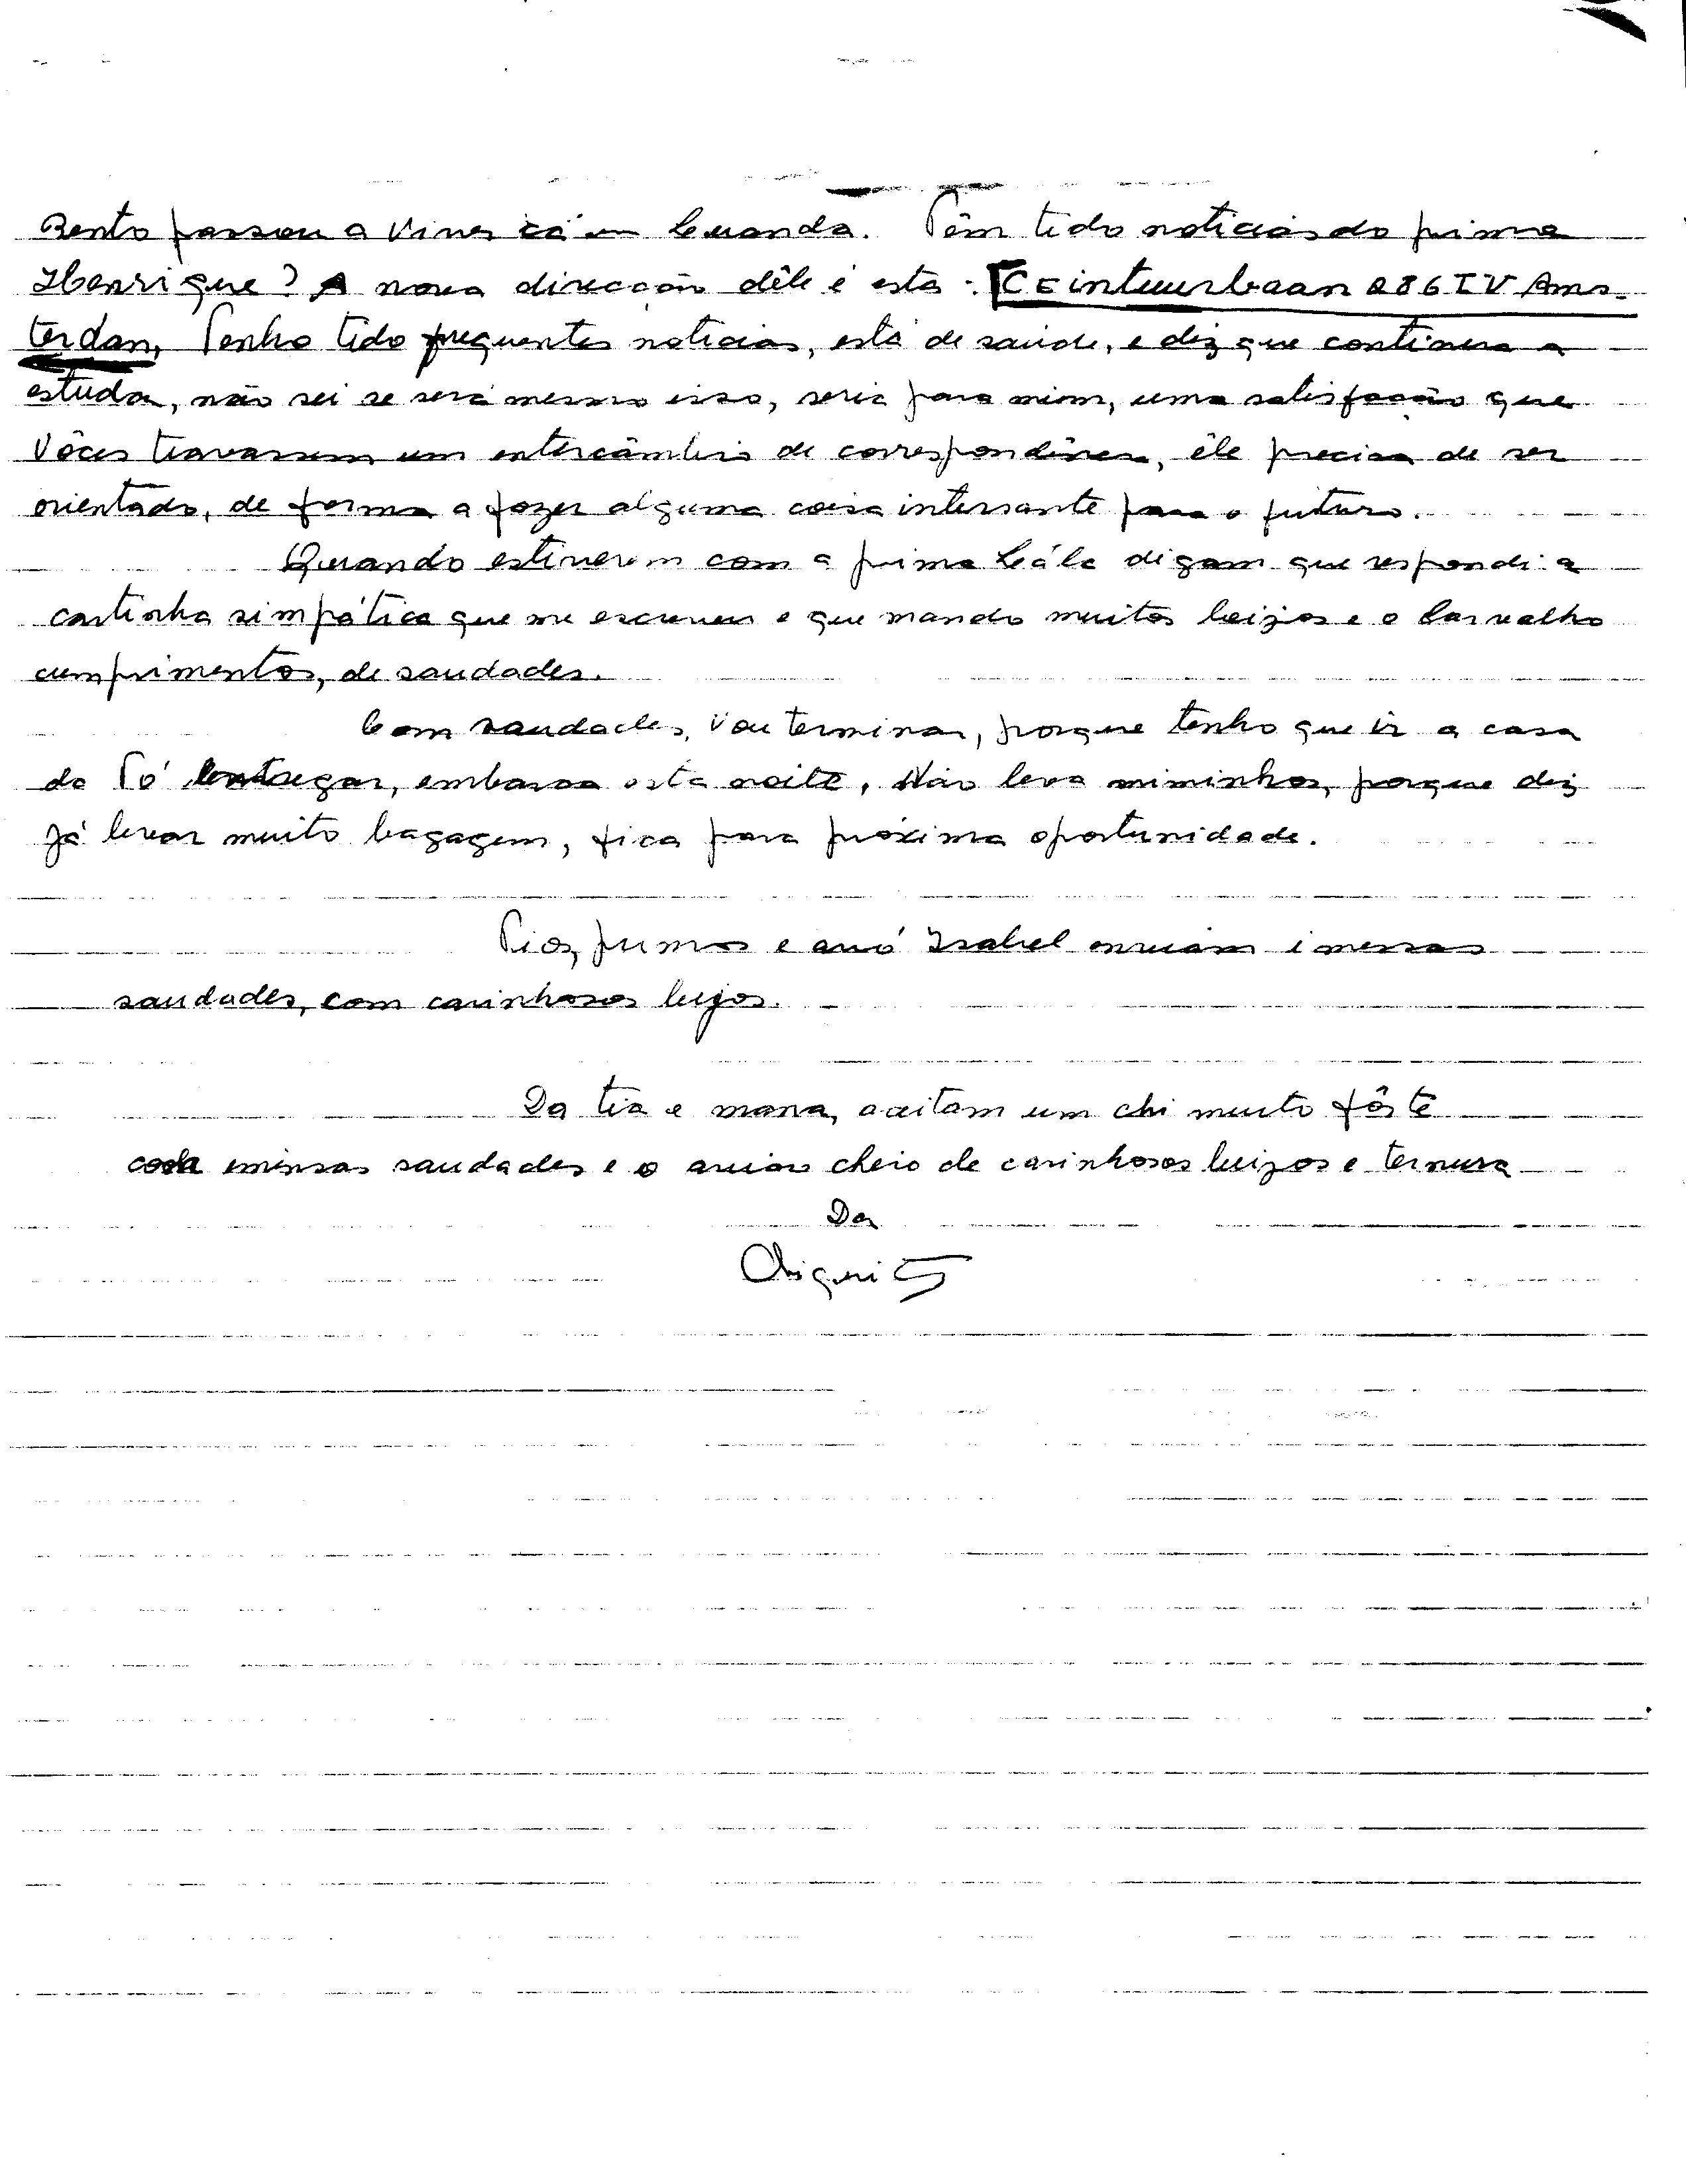 Bento passou a viver cá em Luanda. Têm tido noticias do primo
Henrique? A nova direcção dêle é esta: CEintuurbaan 286 IV Ams-
terdan, Tenho tido frequentes noticias, está de saúde, e diz que continua a
estudar, não sei se será mesmo isso, seria para mim, uma satisfação que
Vôces travassem um intercâmbio de correspondência, êle precisa de ser
orientado, de forma a fazer alguma coisa interssante para o futuro.
Quando estiverem com a prima Lála digam que respondi a
cartinha simpática que me escreveu e que mando muitos beijos e o Carvalho
cumprimentos, de saudades.
Com saudades, vou terminar, porque tenho que ir a casa
do Tó entregar, embarca esta noite, Não leva miminhos, porque diz
já levar muito bagagem, fica para próxima oportunidade.
Tios, primos e avó Isabel enviam imensas
saudades, com carinhosos beijos.
Da tia e mana, aceitam um chi muito fôrte
com imensas saudades e o avião cheio de carinhosos beijos e ternura
Da
Chiquita